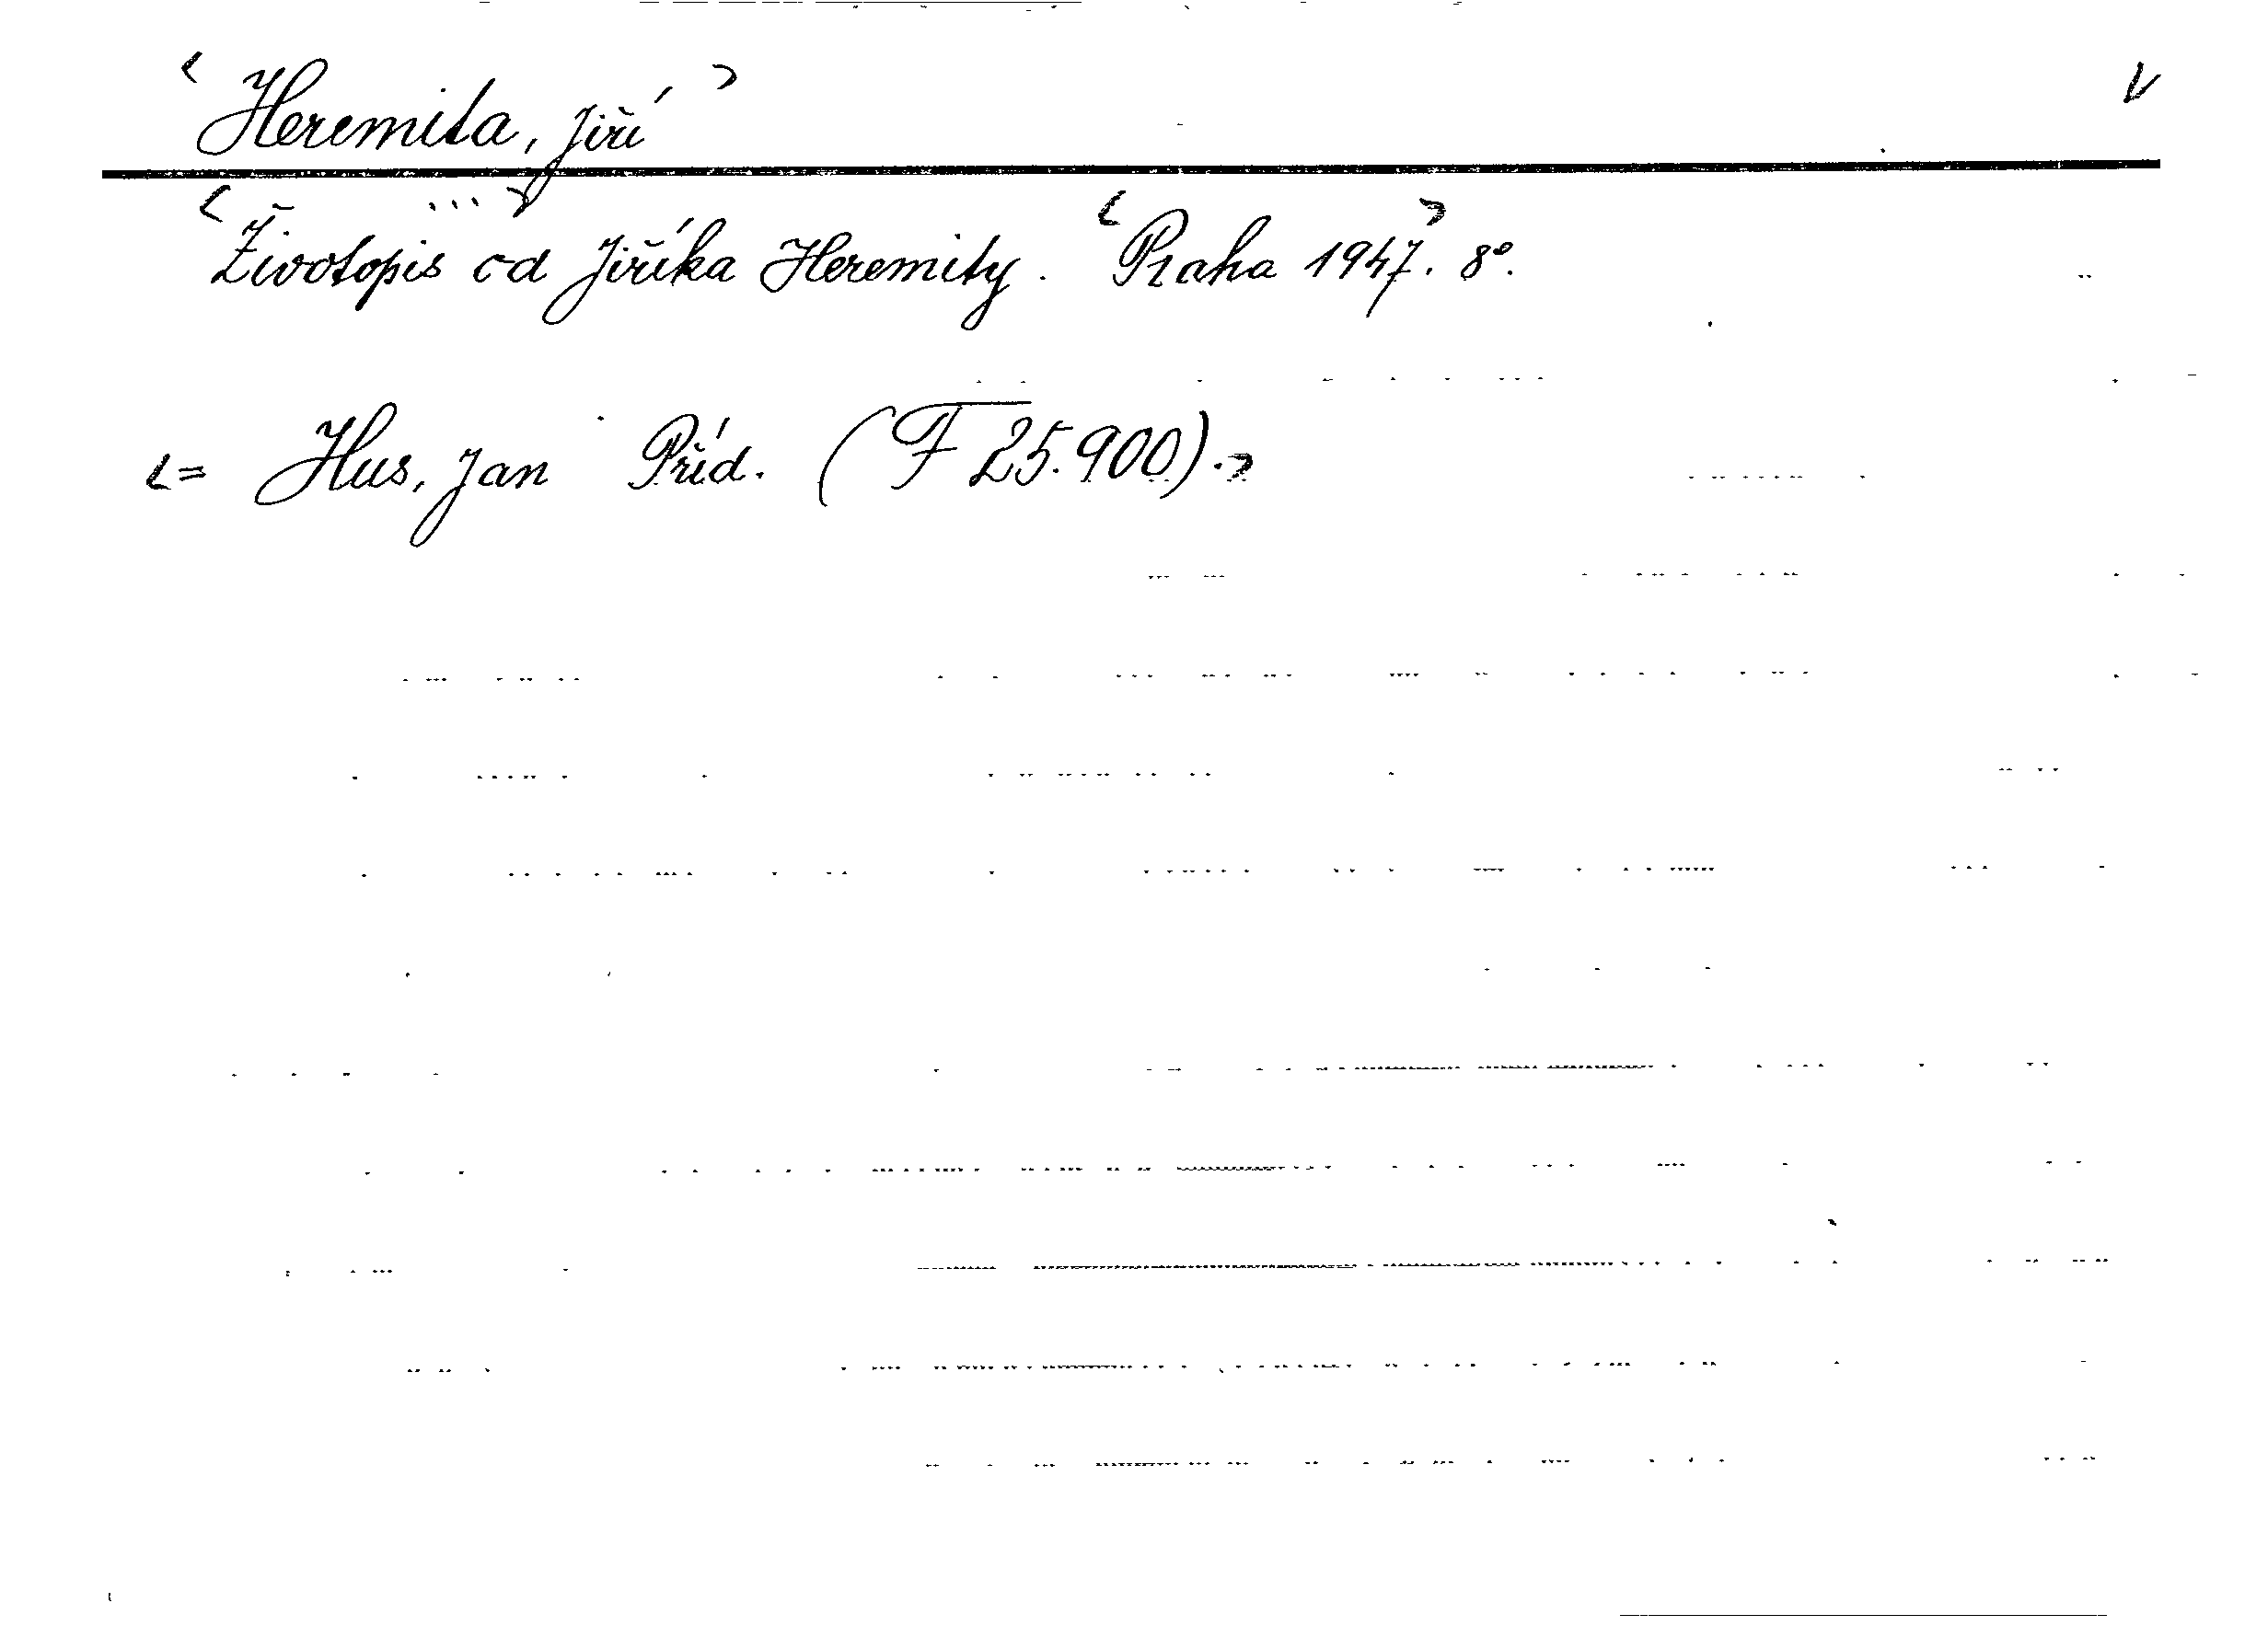 < Heremita, Jiří > V
< Životopis ... > od Jiříka Heremity. < Praha 1947 >. 8°.
<= Hus, Jan Příd. (F 25.900).>